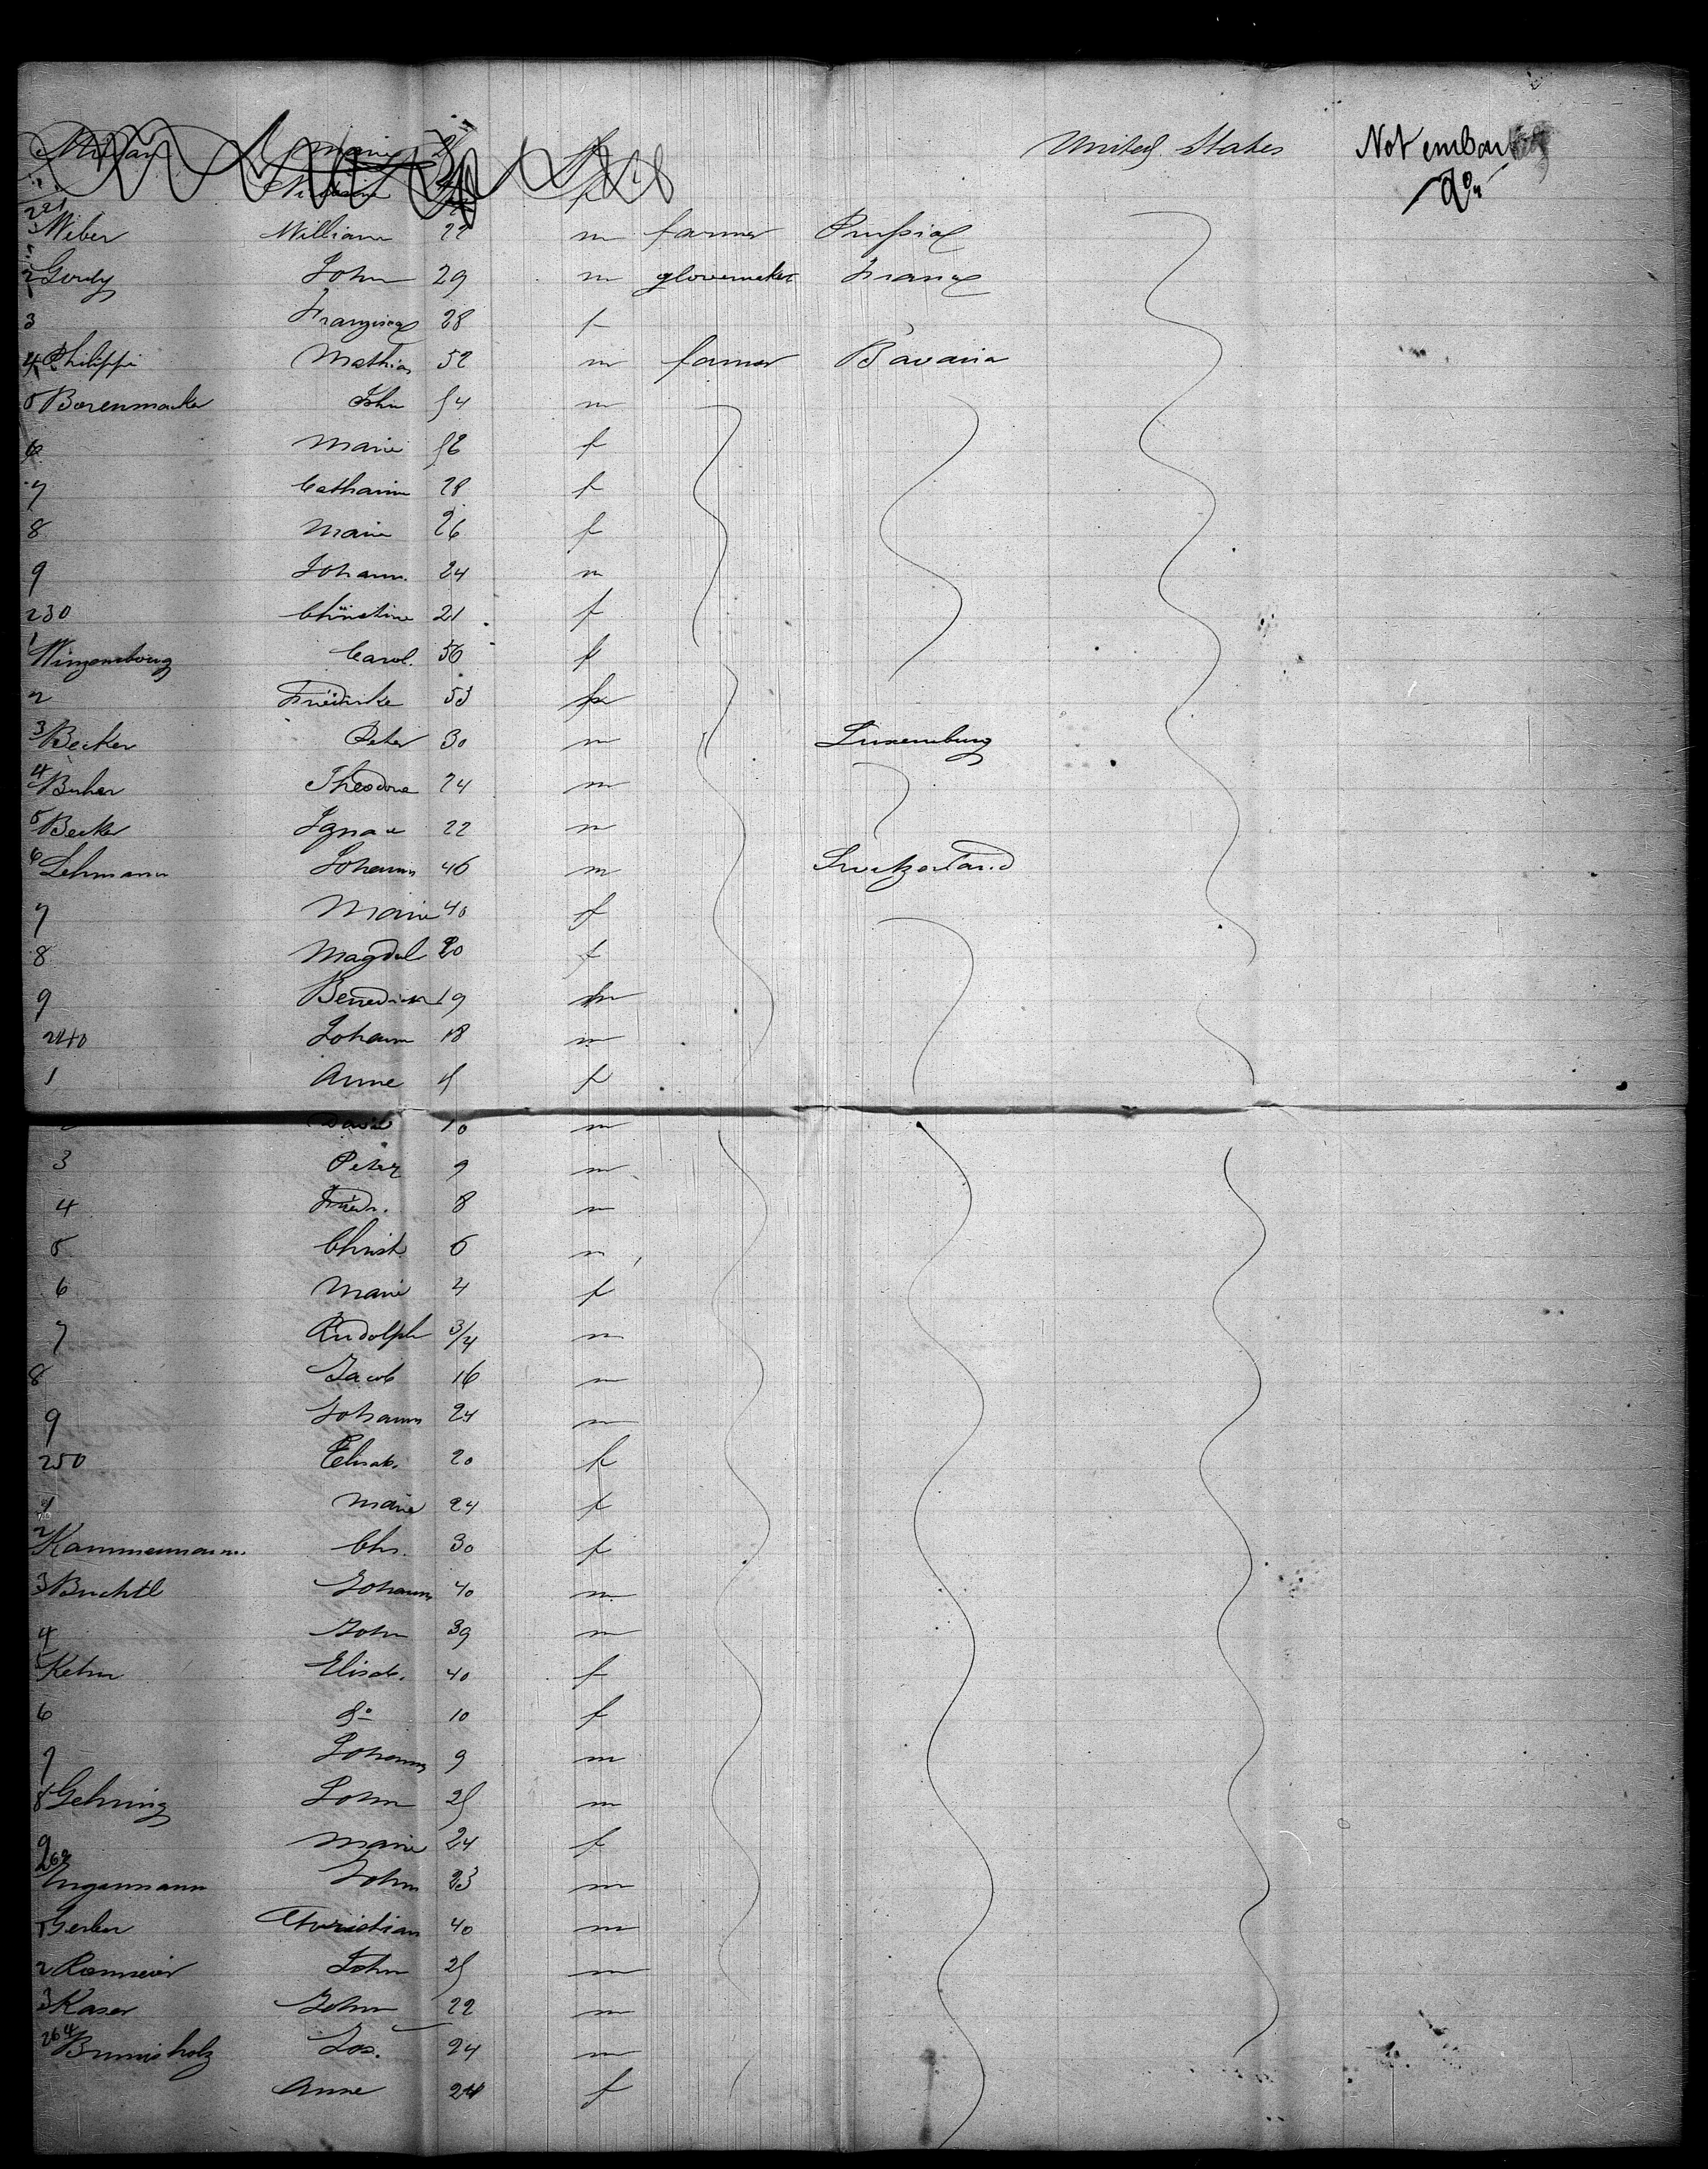 Marie United States Not embar
f do
221 Weber William 22 m farmer Prussia
2 Gordy John 29 m glovemaker France
3 Franzisca 28 f
4 Philippi Mathias 52 m farmer Bavaria
5 Borenmacker John 54 m
6 Marie 52 f
7 Catharine 28 f
8 Marie 26 f
9 Johann. 24 m
230 Christine 21 f
1 Winzembourg Carol. 56 f
2 Friedrike 53 f
3 Becker Peter 30 m Luxemburg
4 Buher Theodore 24 m
5 Becker Ignace 22 m
6 Lehmann Johann 46 m Switzerland
7 Marie 40 f
8 Magdal 20 f
9 Benedict 19 m
240 Johann 18 m
1 Anne f
David 10 m
3 Peter 9 m
4 Friedr. 8 m
5 Christ. 6 m
6 Marie 4 f
7 Rudolph 3/4 m
8 Jacob 16 m
9 Johann 24 m
250 Elisab. 20 f
1 Marie 24 f
2 Kammermann. Chr. 30 f
3 Buchtl Johann 40 m
4 John 39 m
5 Kehr Elisab. 40 f
6 do 10 f
7 Johann 9 m
8 Gehring John 25 m
9 Marie 24 f
260 Ungermann John 23 m
1 Gerber Christian 40 m
2 Ramseier John 25 m
3 Kaser John 22 m
264 Brunisholz Jos. 24 m
Anne 24 f